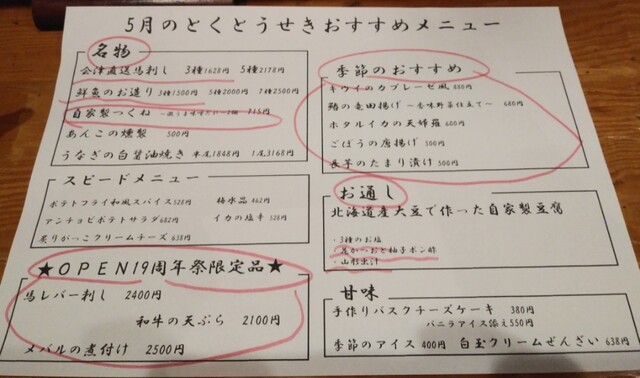 5月のとくとうせきおすすめメニュー
名物
会津直送馬刺し 3種1628円 5種2178円
鮮魚のお造り 3種1500円 5種2000円 7種2500円
自家製つくね 715円
あんこの燻製 500円
うなぎの白醤油焼き 半尾1848円 1尾3168円
スピードメニュー
ポテトフライ和風スパイス528円 梅水晶462円
アンチョビポテトサラダ682円 イカの塩辛 528円
炙りがっこクリームチーズ 638円
★OPEN19周年祭限定品★
馬レバー刺し 2400円
和牛の天ぷら 2100円
メバルの煮付け 2500円
季節のおすすめ
キウイのカプレーゼ風 880円
鶏の竜田揚げ ～香味野菜仕立て～ 680円
ホタルイカの天婦羅 600円
ごぼうの唐揚げ 500円
長芋のたまり漬け 500円
お通し
北海道産大豆で作った自家製豆腐
・3種のお塩
・花かつおと柚子ポン酢
・山形出汁
甘味
手作りバスクチーズケーキ 380円
バニラアイス添え550円
季節のアイス 400円 白玉クリームぜんざい 638円